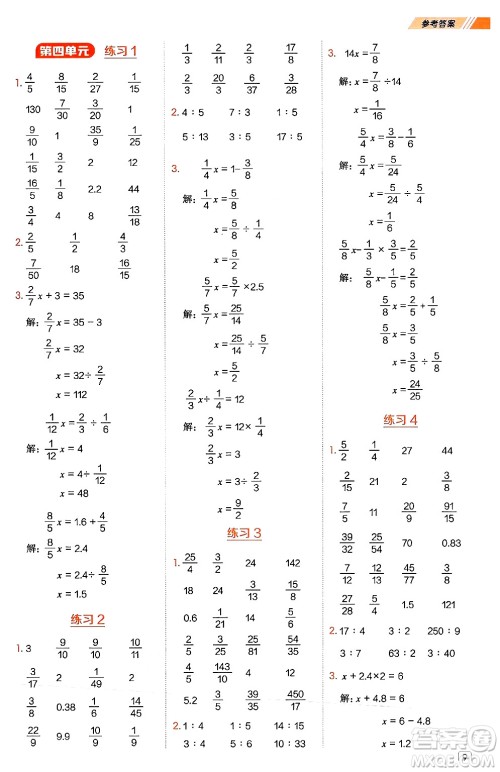 参考答案
第四单元 练习1
1. 4/5 8/15 2/27 1/15
130 7/30 3/20 2
9/10 1 35/9 1/25
1/15 11/16 2 12
16/5 1/5 2.2 44
3/4 4 8 13/18
2. 2/5 1/2 2/9
7/50 18 16/15
3. 2/7 x+3=35
解: 2/7 x=35-3
2/7 x=32
x=32÷2/7
x=112
1/12 x=2/3÷1/6
解: 1/12 x=4
x=4÷1/12
x=48
8/5 x=1.6+4/5
解: 8/5 x=2.4
x=2.4÷8/5
x=1.5
练习2
1. 3 9/10 9/10 10/11
3/17 2 16 15
3/8 0.38 1/6 6
22/9 9.9 10/9 3/10
1/3 2/11 2/15 17/8
20/9 63/20 3/8 3/28
2. 4∶5 7∶5
5∶13 17∶13
3. 1/4 x=1-3/8
解: 1/4 x=5/8
x=5/8÷1/4
x=5/2
5/7 x=5/7×2.5
解: 5/7 x=25/14
x=25/14÷5/7
x=5/2
2/3 x÷1/12=12
解: 2/3 x=12×1/4
2/3 x=3
x=3÷2/3
x=9/2
练习3
1. 25/4 2/3 24 142
18 24 3/13 14/15
0.6 1/14 51/2 3/8
4/5 143/10 4 21
5.2 3/7 39/9 450/17
2. 1∶4 1∶2 14∶1
4∶3 3∶5 14∶5
3. 14x=7/8
解: x=7/8÷14
x=1/16
5/4 x=3/8-1/6
解: 5/4 x=5/24
x=5/24÷5/4
x=1/6
5/8 x-1/3×3/5=2/5
解: 5/8 x-1/5=2/5
5/8 x=2/5+1/5
5/8 x=3/5
x=3/5÷5/8
x=24/25
练习4
1. 5/2 1/4 27 44
2/15 21 2 3/8
7/5 11 20/9 91/15
39/32 35/8 70 0.83
7/12 44/15 45/8 77/36
27/2 21/8 1.5 3/8
2. 17∶4 3∶2 250∶9
3∶37 6∶1 64∶3
3. x+2.4×2=6
解: x+4.8=6
x=6-4.8
x=1.2
答案圈